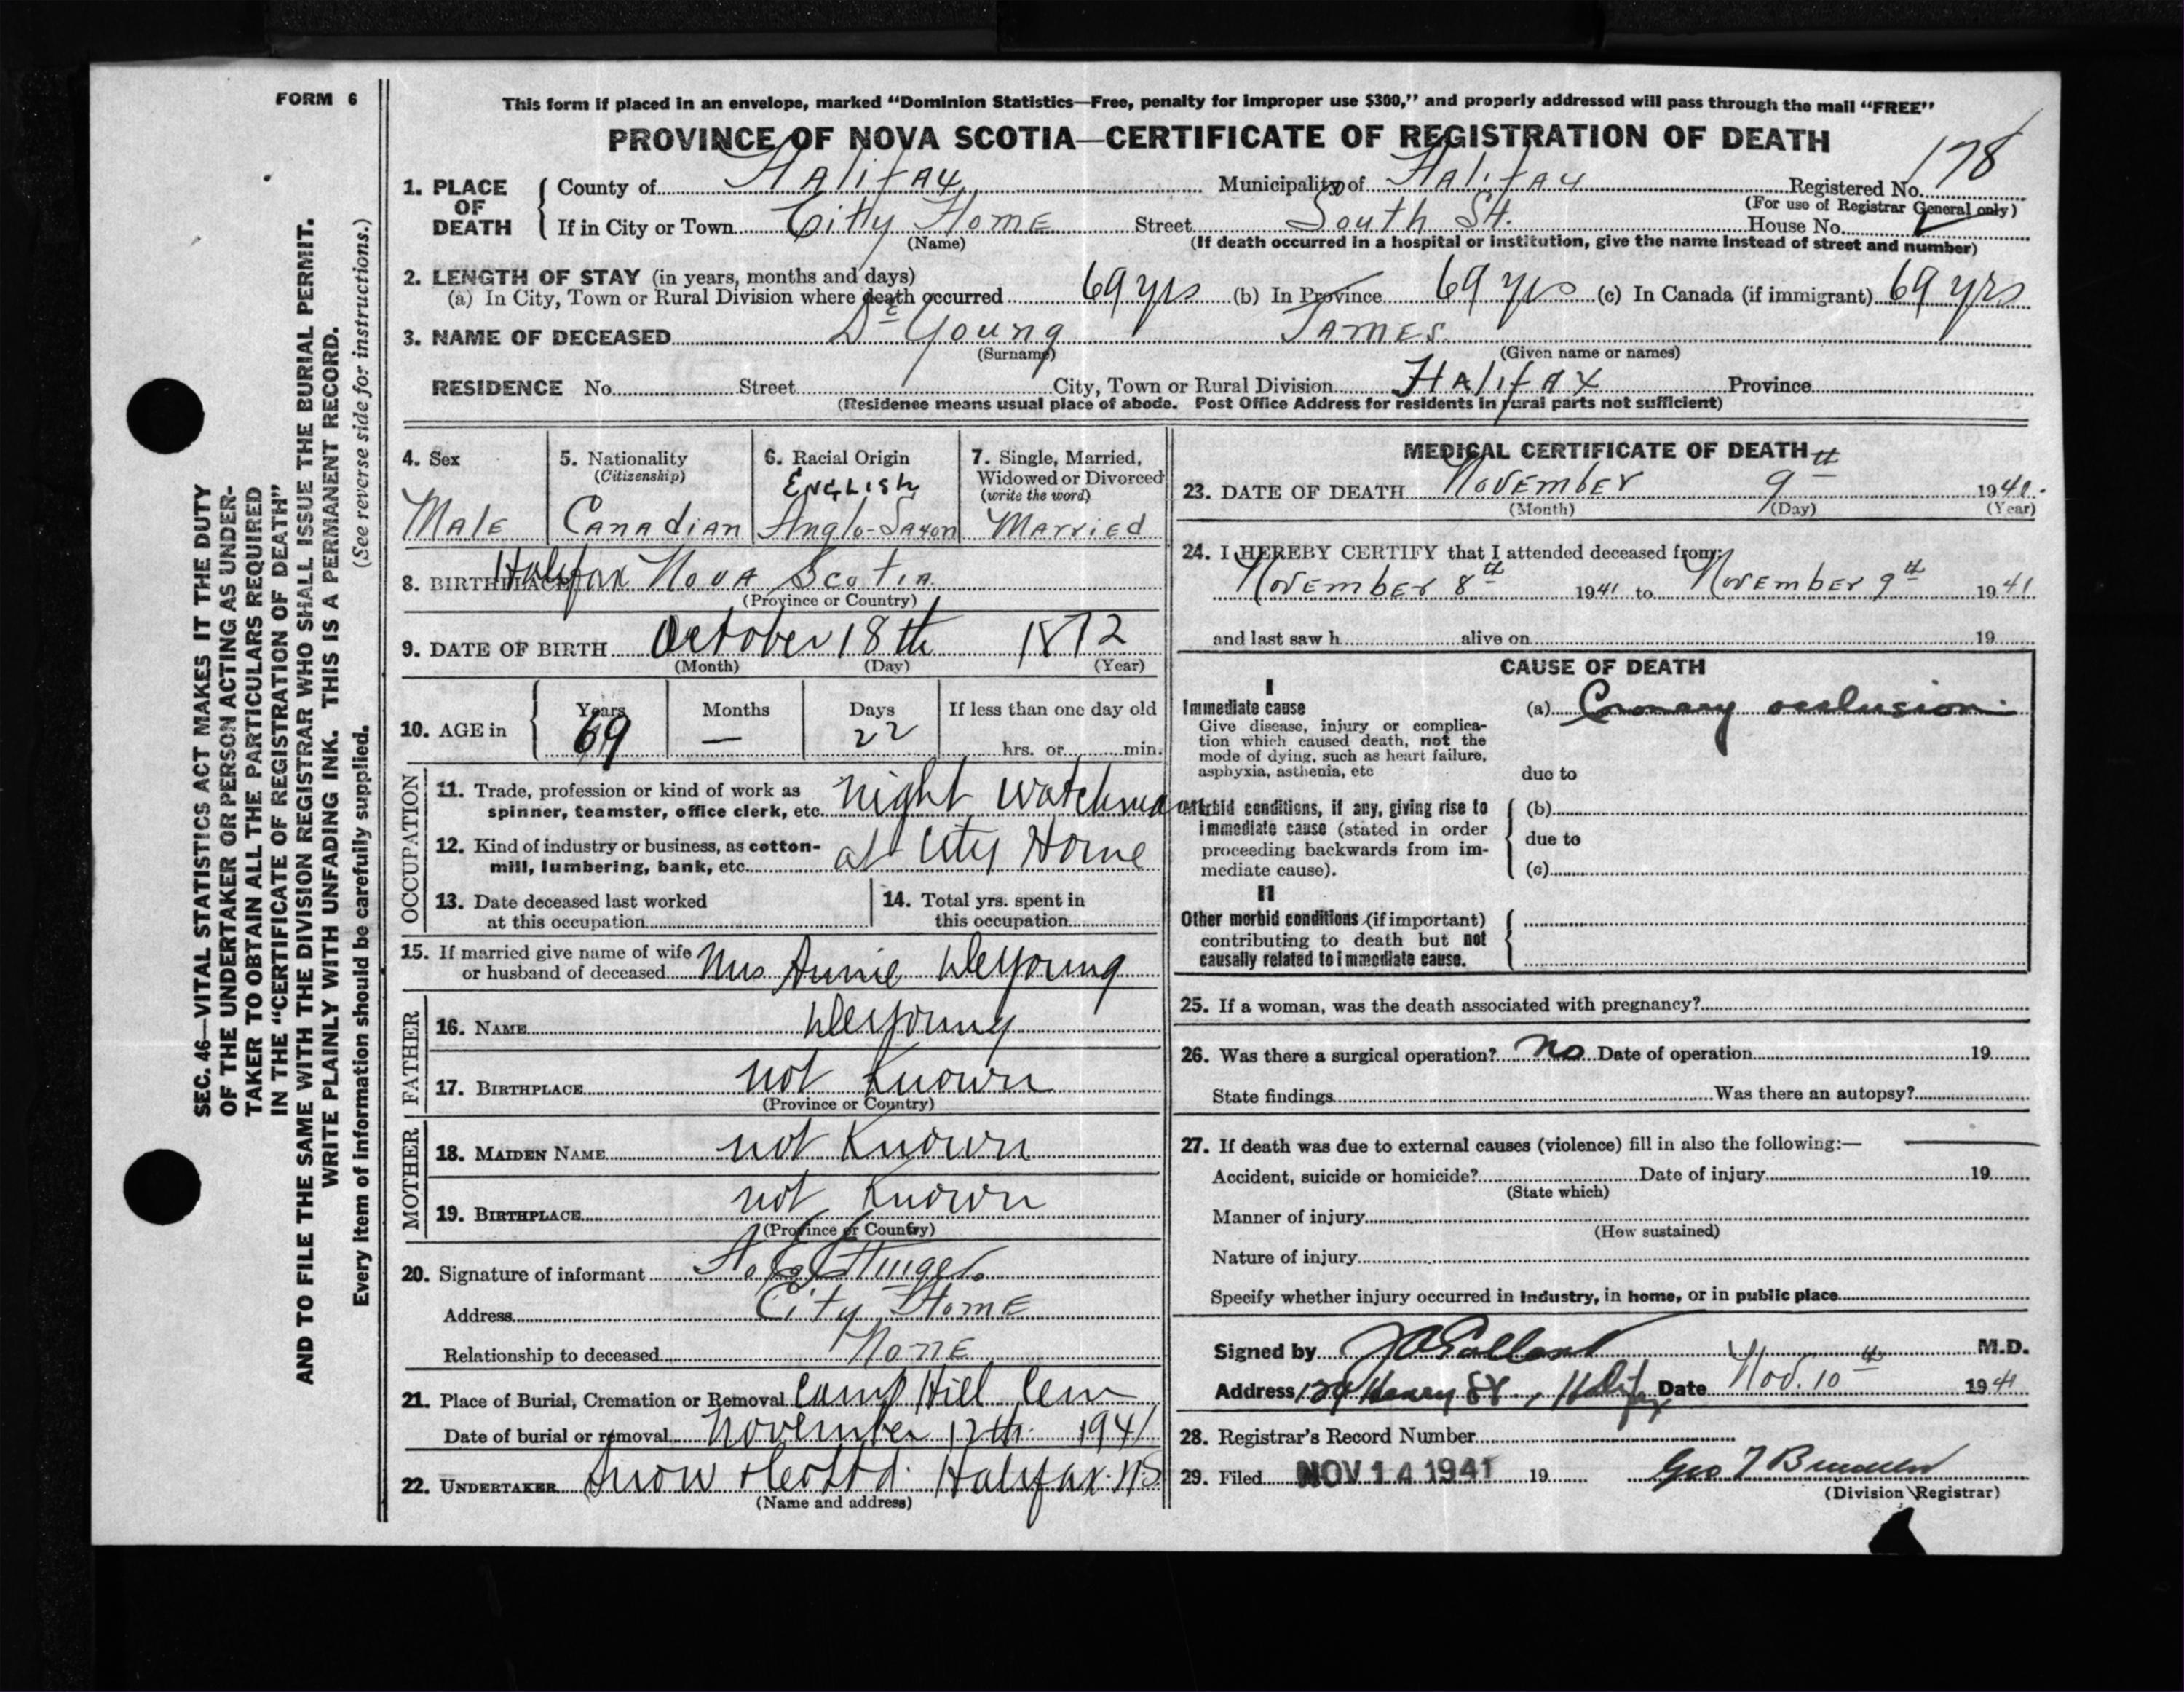 FORM 6
This form if placed in an envelope, marked "Dominion Statistics—Free, penalty for improper use $300," and properly addressed will pass through the mail "FREE"
PROVINCE OF NOVA SCOTIA—CERTIFICATE OF REGISTRATION OF DEATH
178
1. PLACE OF DEATH
County of Halifax Municipality of Halifax Registered No.
(For use of Registrar General only)
If in City or Town City Home Street South St. House No.
(Name) (If death occurred in a hospital or institution, give the name instead of street and number)
2. LENGTH OF STAY (in years, months and days)
(a) In City, Town or Rural Division where death occurred 69 yrs (b) In Province 69 yrs (c) In Canada (if immigrant) 69 yrs
3. NAME OF DECEASED De Young James
(Surname) (Given name or names)
RESIDENCE No. Street City, Town or Rural Division Halifax Province
(Residence means usual place of abode. Post Office Address for residents in rural parts not sufficient)
4. Sex
Male
5. Nationality
(Citizenship)
Canadian
6. Racial Origin
English
Anglo-Saxon
7. Single, Married,
Widowed or Divorced
(write the word)
Married
8. BIRTHPLACE Halifax Nova Scotia
(Province or Country)
9. DATE OF BIRTH October 18th 1872
(Month) (Day) (Year)
10. AGE in
Years Months Days If less than one day old
69 — 22 hrs. or min.
OCCUPATION
11. Trade, profession or kind of work as
spinner, teamster, office clerk, etc. night watchman
12. Kind of industry or business, as cotton-
mill, lumbering, bank, etc. at City Home
13. Date deceased last worked
at this occupation
14. Total yrs. spent in
this occupation
15. If married give name of wife
or husband of deceased Mrs Annie DeYoung
FATHER
16. NAME DeYoung
17. BIRTHPLACE not Known
(Province or Country)
MOTHER
18. MAIDEN NAME not Known
19. BIRTHPLACE not Known
(Province or Country)
20. Signature of informant
Address City Home
Relationship to deceased None
21. Place of Burial, Cremation or Removal Camp Hill Cem
Date of burial or removal November 12th 1941
22. UNDERTAKER Snow & Co Ltd. Halifax. N.S
(Name and address)
MEDICAL CERTIFICATE OF DEATH
23. DATE OF DEATH November 9th 1941.
(Month) (Day) (Year)
24. I HEREBY CERTIFY that I attended deceased from:
November 8th 1941 to November 9th 1941
and last saw h alive on 19
CAUSE OF DEATH
I
Immediate cause
Give disease, injury or complica-
tion which caused death, not the
mode of dying, such as heart failure,
asphyxia, asthenia, etc
(a) Coronary occlusion
due to
Morbid conditions, if any, giving rise to
immediate cause (stated in order
proceeding backwards from im-
mediate cause).
(b)
due to
(c)
II
Other morbid conditions (if important)
contributing to death but not
causally related to immediate cause.
25. If a woman, was the death associated with pregnancy?
26. Was there a surgical operation? No Date of operation 19
State findings Was there an autopsy?
27. If death was due to external causes (violence) fill in also the following:—
Accident, suicide or homicide? Date of injury 19
(State which)
Manner of injury
(How sustained)
Nature of injury
Specify whether injury occurred in industry, in home, or in public place
Signed by M.D.
Address Henry St., Halifax Date Nov. 10th 1941
28. Registrar's Record Number
29. Filed NOV 14 1941 19
(Division Registrar)
SEC. 46—VITAL STATISTICS ACT MAKES IT THE DUTY
OF THE UNDERTAKER OR PERSON ACTING AS UNDER-
TAKER TO OBTAIN ALL THE PARTICULARS REQUIRED
IN THE "CERTIFICATE OF REGISTRATION OF DEATH"
AND TO FILE THE SAME WITH THE DIVISION REGISTRAR WHO SHALL ISSUE THE BURIAL PERMIT.
WRITE PLAINLY WITH UNFADING INK. THIS IS A PERMANENT RECORD.
Every item of information should be carefully supplied. (See reverse side for instructions.)